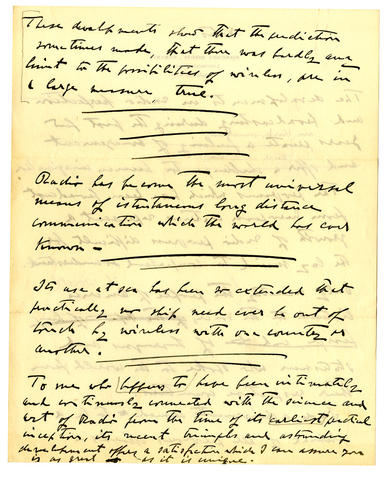 These developments show that the prediction
sometimes made, that there was hardly any
limit to the possibilities of wireless, are in
a large measure, true.
Radio has become the most universal
means of istentaneous long distance
communication which the world has ever
known —
Its use at sea has been so extended that
practically no ship need ever be out of
touch by wireless with one country or
another.
To me who happens to have been intimately
and continuously connected with the science and
art of Radio from the time of its earliest practical
inception, its recent triumphs and astounding
development offers a satisfaction which I can assure you
is as great — as it is unique.